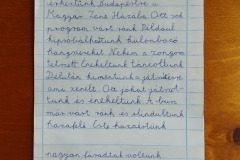 érkeztünk Budapestre a
Magyar Zene Házába Ott sok
program várt ránk Például
kipróbálhattunk különböző
hangszereket Nekem a zongora
tetszett Énekeltünk táncoltunk
Délután kimentünk a játszótérre
ami zenélt. Ott jókat játszot-
tunk és énekeltünk. A busz
már várt ránk és elindultunk
hazafelé Este hazaértünk
nagyon fáradtak voltunk